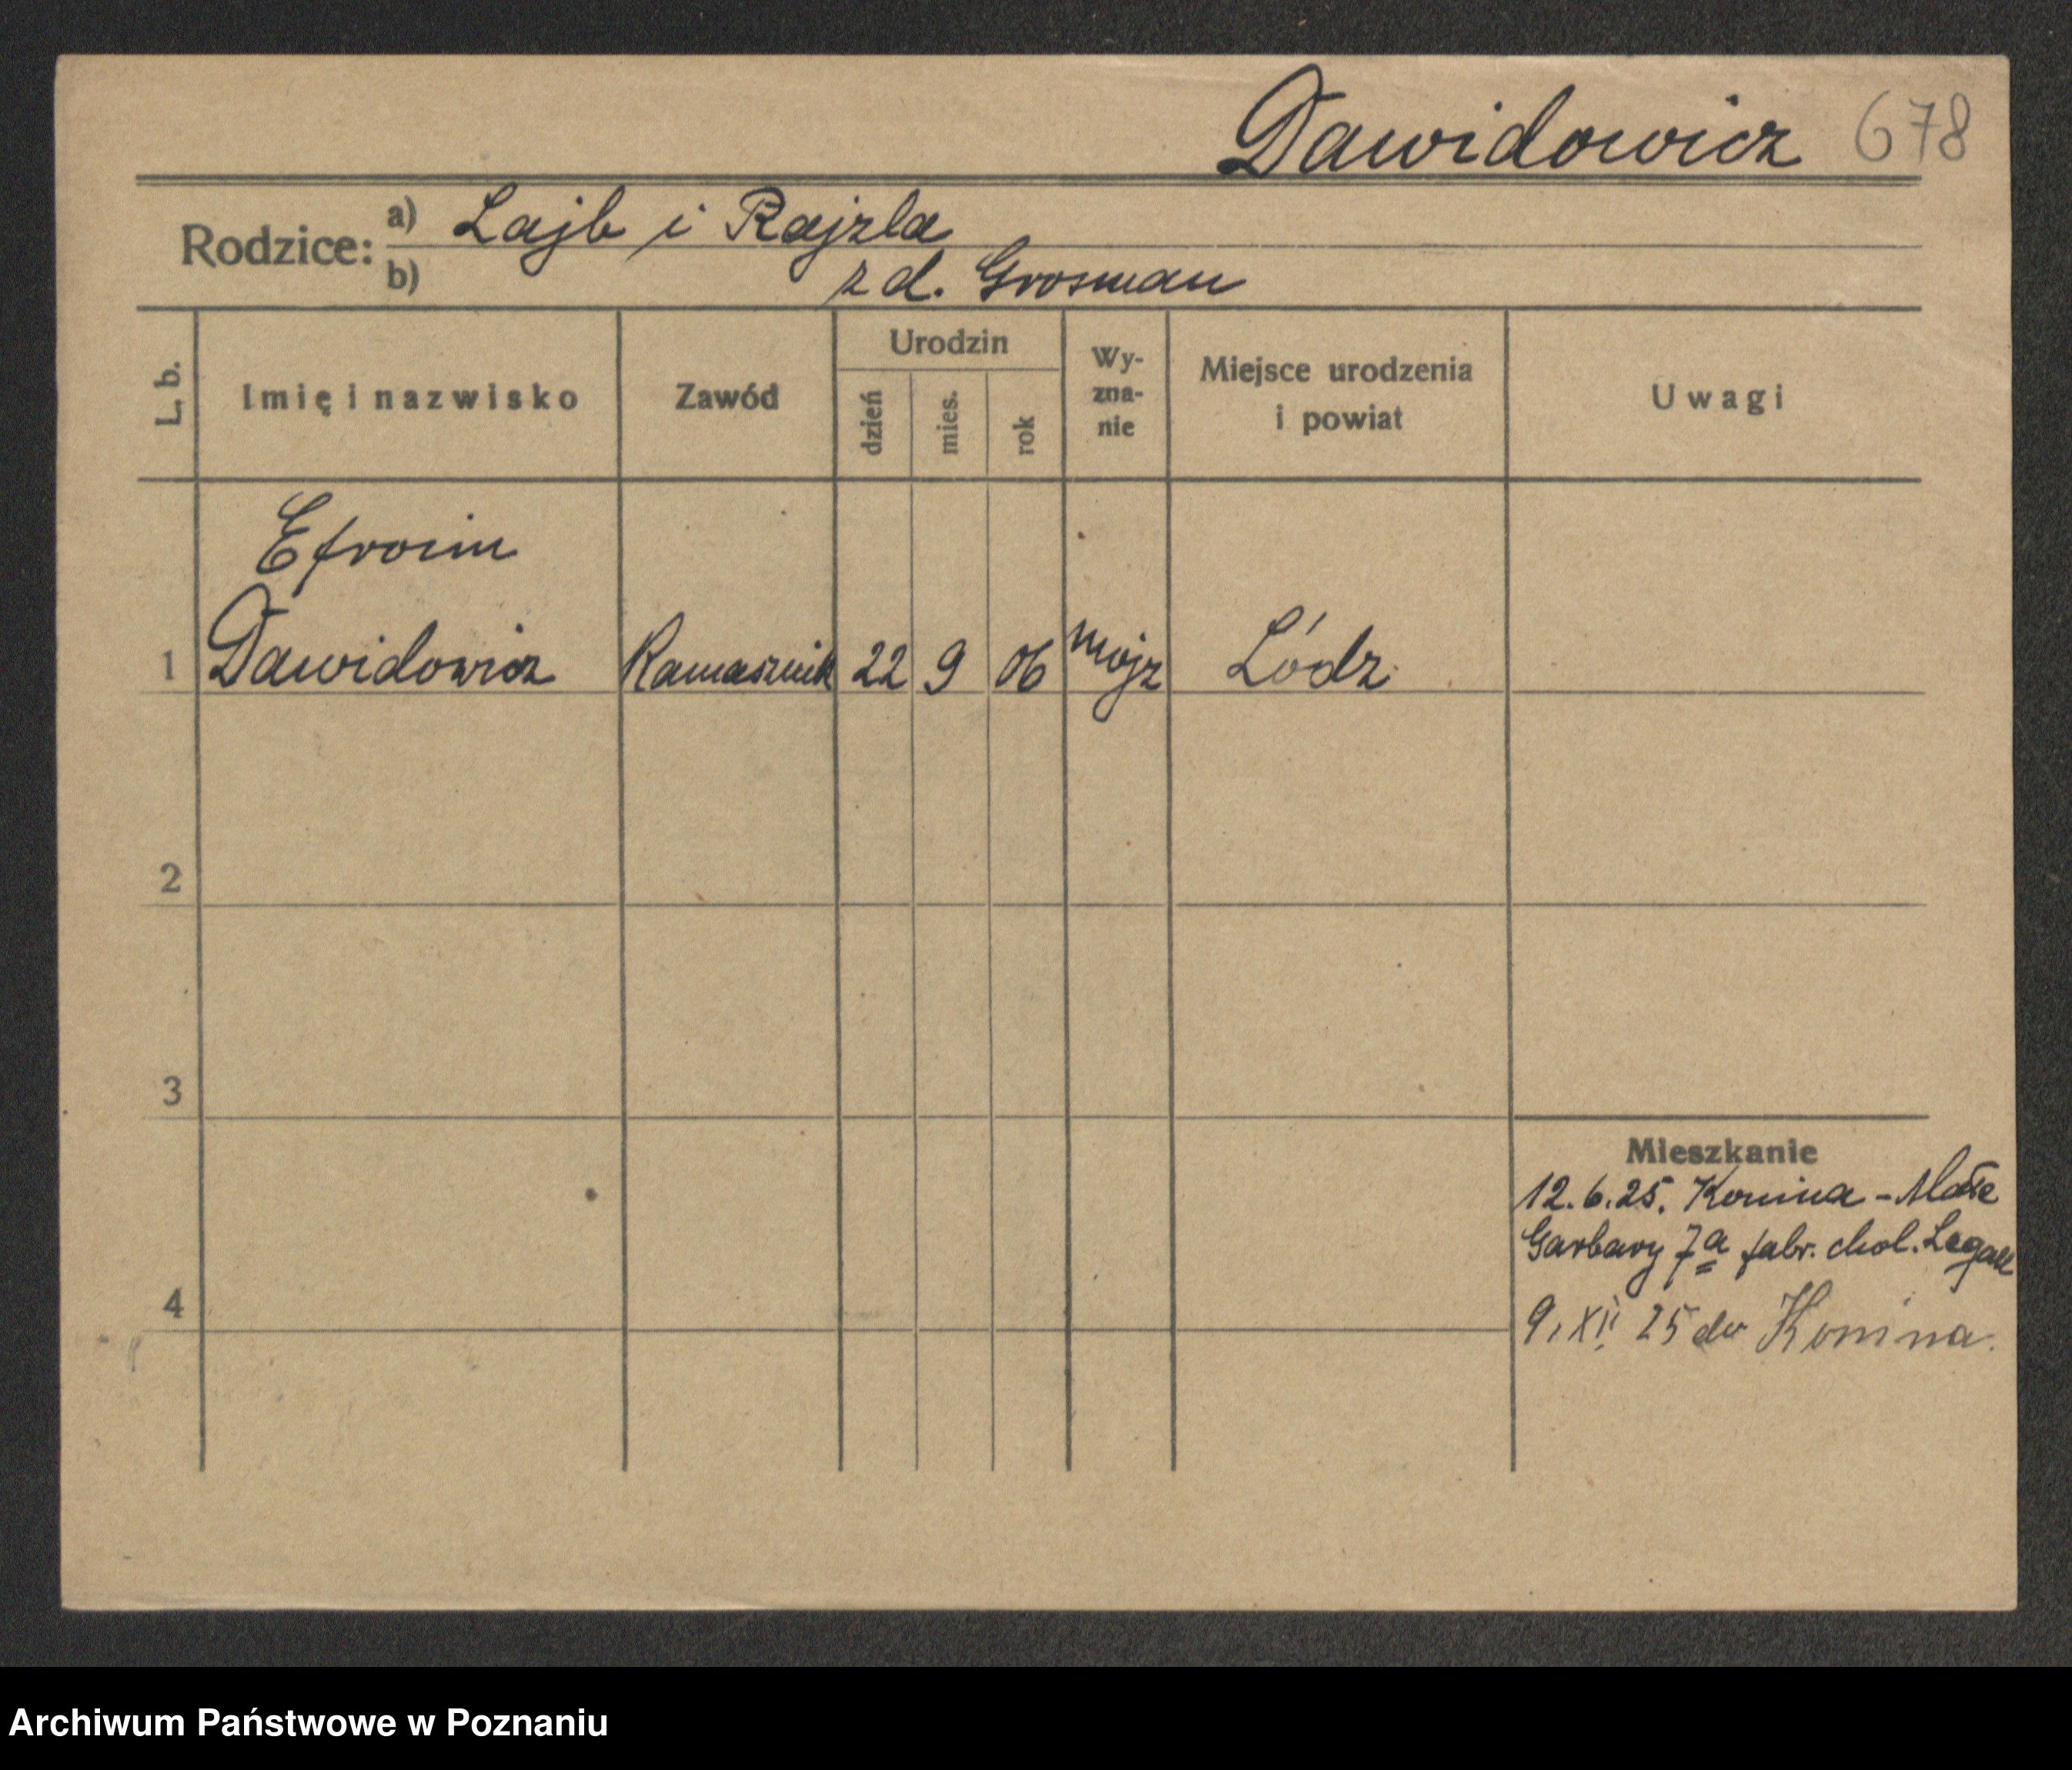 Dawidowicz 678
Rodzice: a) Lajb i Rajzla
b) z d. Grosman
L. b. Imię i nazwisko Zawód Urodzin dzień mies. rok Wy-zna-nie Miejsce urodzenia i powiat Uwagi
Efroim
1 Dawidowicz Kamasznik 22 9 06 mojz Łódz
2
3
Mieszkanie
12.6.25. Konina - Małe
Garbary 7a fabr. chol.
4
9. XII 25 do Konina.
Archiwum Państwowe w Poznaniu